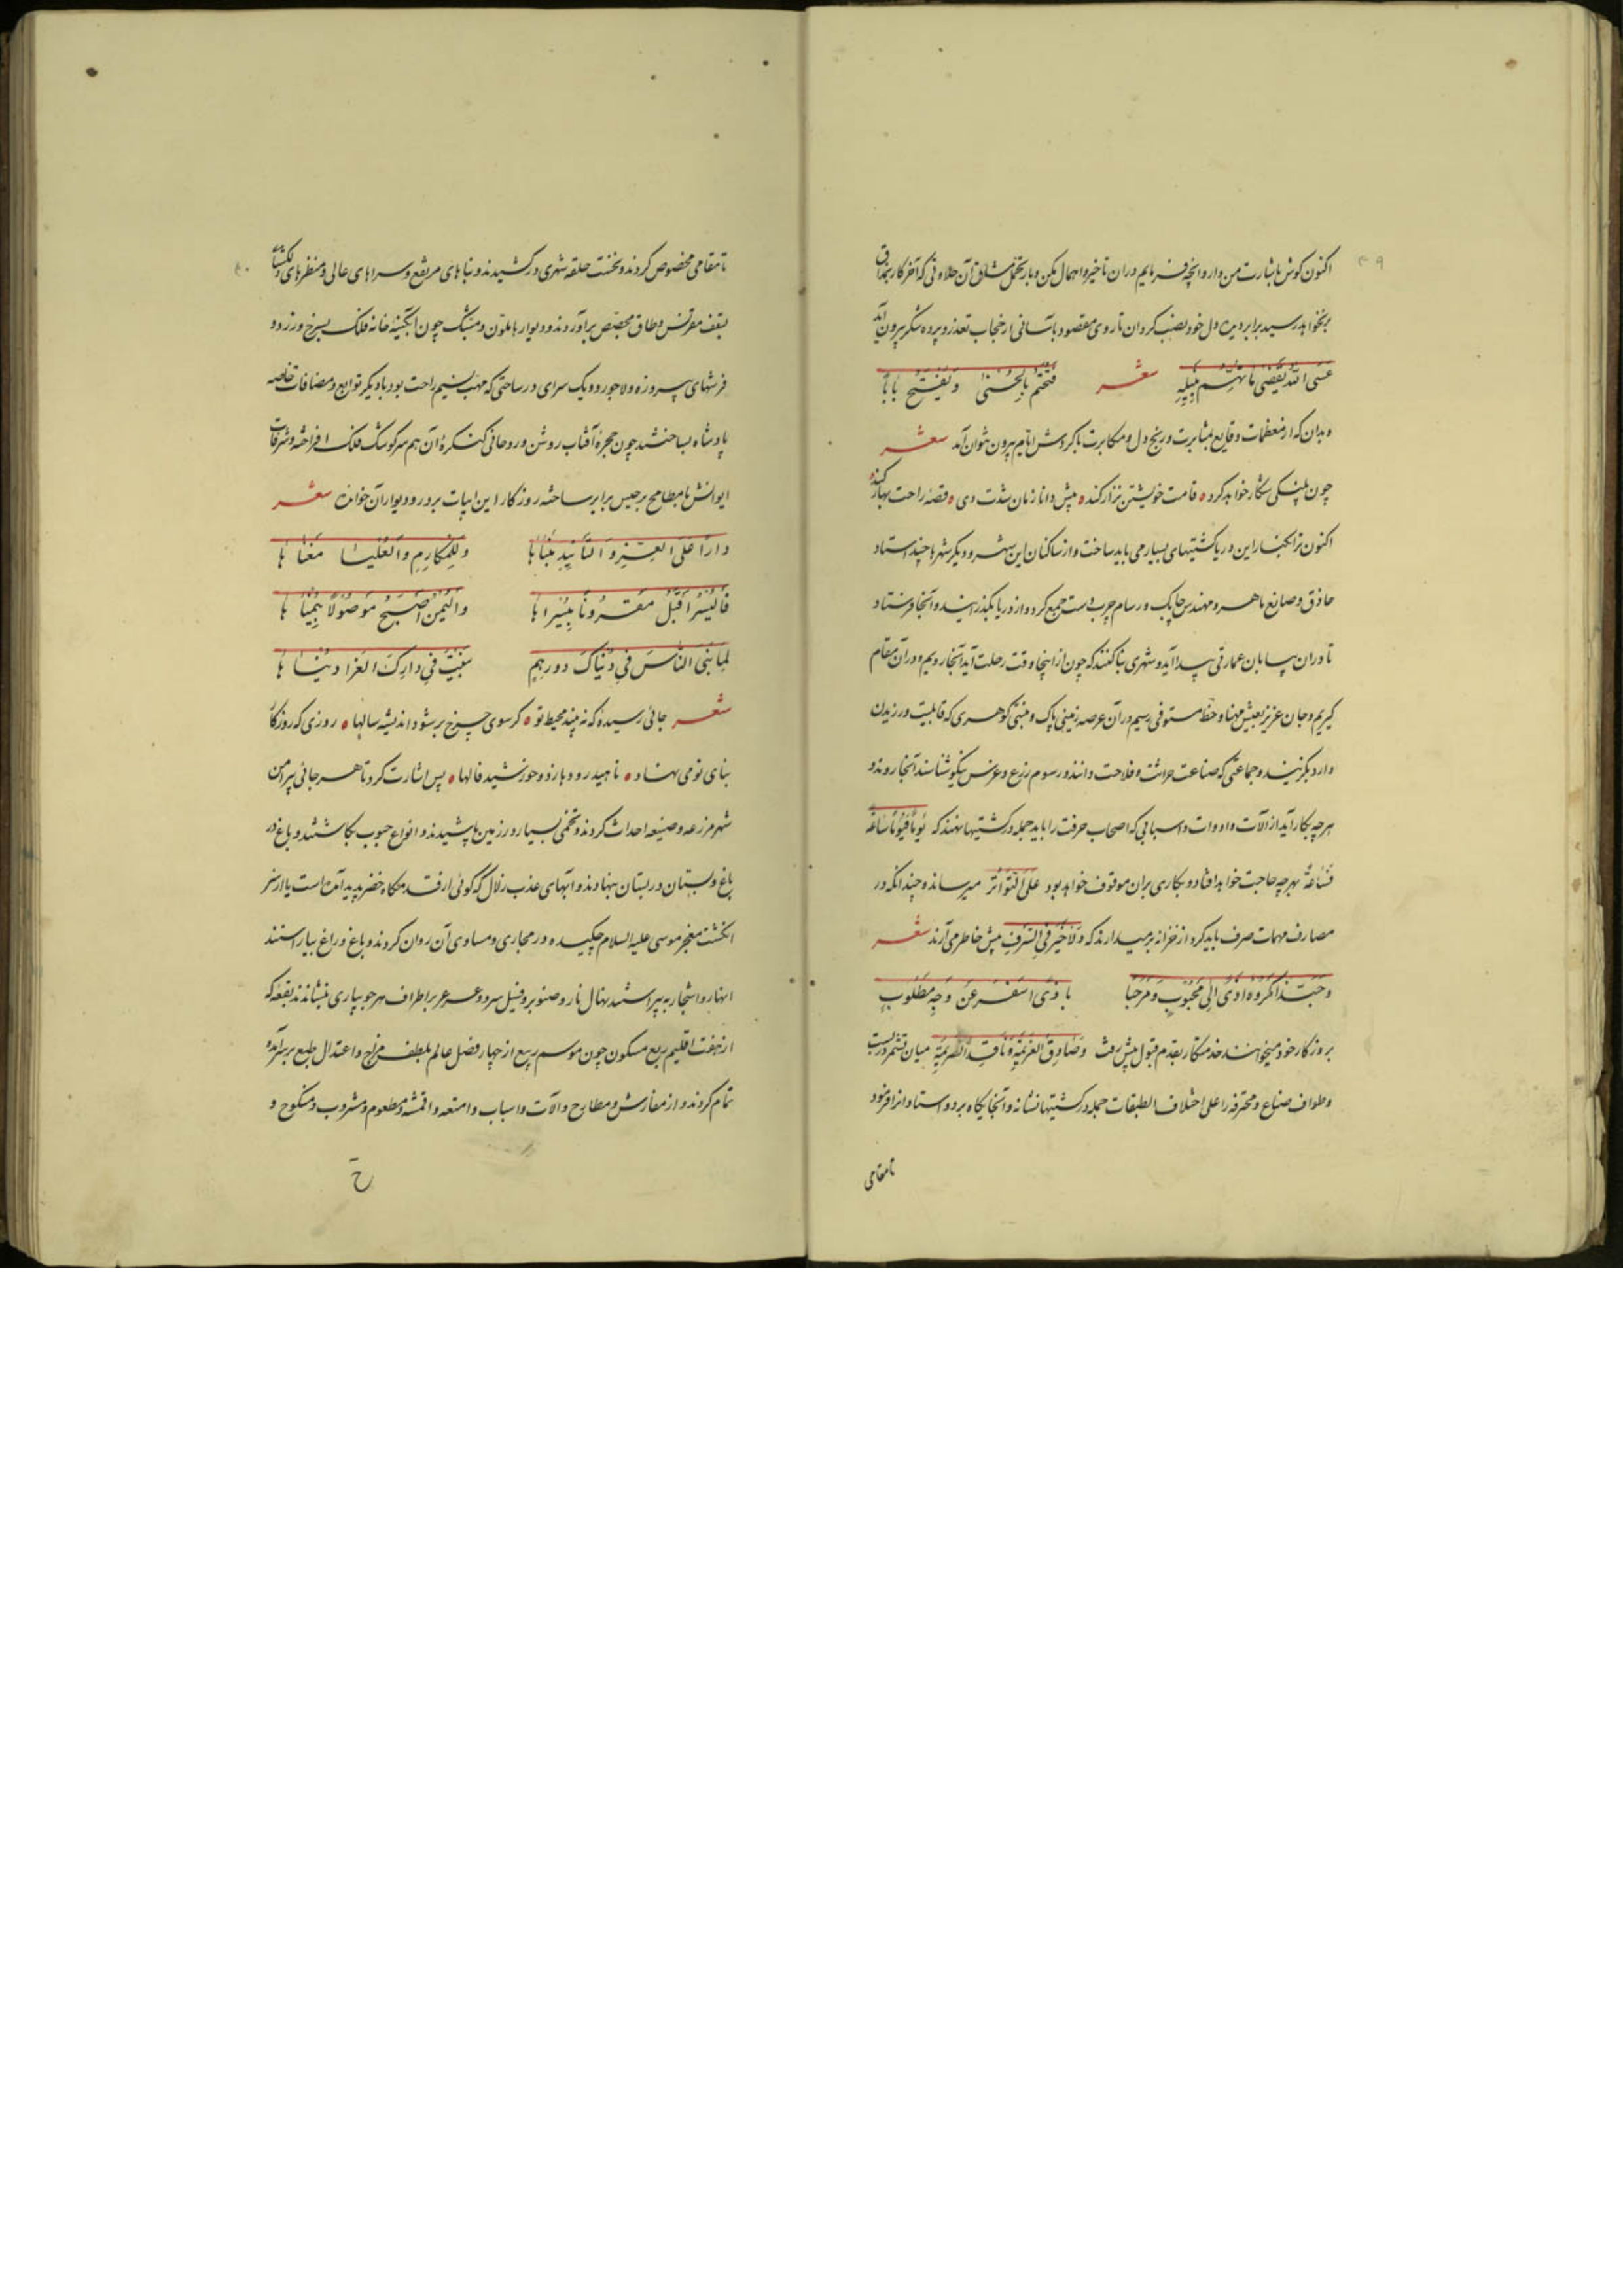 ۳۹
اکنون گوش باشارت من دار و آنچه فرمایم در آن تأخیر و اهمال مکن و بار تحمل مشاق آن حلاوتی که آخر کار بمذاق
بخواهد رسید برابر دیده دل خود نصب کردان تا روی مقصود بآسانی از حجاب تعذر و پرده تنکر بیرون آید
عَسَی اللّه یَقضی ما تهتم بنیله شعر فتختم بالحسنی و تفتح بابا
و بدان که از معظمات وقایع بمثابرت و رنج دل و مکابرت با گردش ایام بیرون توان آمد شعر
چون پلنگی شکار خواهد کرد • قامت خویشتن نزار کند • پیش دانا زمان شدت دی • قصهٔ راحت بهار کند
اکنون ترا بکنار این دریا کشتیهای بسیار می باید ساخت و از ساکنان این شهر و دیگر شهرها چند استاد
حاذق و صانع ماهر و مهندس چابک و رسام چرب دست جمع کرد و از دریا بگذرانید و آنجا فرستاد
تا در آن بیابان عمارتی پیدا آید و شهری بنا کنند که چون از اینجا وقت رحلت آید آنجا رویم و در آن مقام
گیریم و جان عزیز بعیش مهنا و حظ مستوفی رسیم در آن عرصه زمینی پاک و منبتی گوهری که قابلیت ورزیدن
دارد بگزینند و جماعتی که صناعت حراثت و فلاحت دانند و رسوم زرع و غرس نیکو شناسند آنجا روند و
هر چه بکار آید از آلات و ادوات و اسبابی که اصحاب حرفت را باید جمله در کشتیها نهند که یَوماً فیوماً ساعةً
فساعةً بهرچه حاجت خواهد افتاد و بکاری بر آن موقوف خواهد بود علی التواتر میرساند و چندانکه در
مصارف مهمات صرف باید کرد از خزانه برمیدارند که ولا خیر فی السرف پیش خاطر می آرند شعر
و حبّذا مکروه ادی الی محبوب و مرحبا باذی اسفر عن وجه مطلوب
بروزگار خود میخواند خدمتکار بقدم قبول پیش رفت و صادق العزیمة و نافذ الصریمة میان تشمر در بست
و طوایف صناع و محترفه را علی اختلاف الطبقات جمله در کشتیها نشانه و آنجایگاه برد و استادانرا فرمود
تا مقامی
۴۰
تا مقامی مخصوص کردند و نخست حلقه شهری در کشیدند و بناهای مرتفع و سراهای عالی و منظرهای دلکشا
بسقف مقرنس و طاق مجصص برآوردند و دیوارها ملون و مشبک چون آبگینه خانه فلک بسرخ و زرد و
فرشهای پیروزه و لاجورد و یک سرای در ساحتی که مهب نسیم راحت بود با دیگر توابع و مضافات خاصه
پادشاه بساختند چون حجرهٔ آفتاب روشن و روحانی کنگرهٔ آن هم سرگوشک فلک افراخته و شرفات
ایوانش با مطامح برجیس برابر ساخته روزگار این ابیات بر در و دیوار آن خوانده شعر
داراً علی العز و التأیید مبناها وللمکارم والعلیا مغناها
فالیسر اقبل مقرونا بیسراها والیمن اصبح موصولا بیمناها
لما بنی الناس فی دنیاک دورهم بنیت فی دارک الغرا دنیاها
شعر جائی رسیده که نه بیند محیط تو • گر سوی چرخ بر شود اندیشه سالها • روزی که روزگار
بنای تو می نهاد • ناهید رود ها زد و خورشید فالها • پس اشارت کرد تا هر جائی پیرامن
شهر مزرعه و ضیعه احداث کردند و تخمی بسیار در زمین پاشیدند و انواع حبوب بکاشتند و باغ در
باغ و بستان در بستان بنهادند و آبهای عذب زلال که گوئی از قدمگاه خضر پدید آمده است یا از سر
انگشت معجز موسی علیه السلام چکیده در مجاری و مساوی آن روان کردند و باغ و راغ بیاراستند
انهار و اشجار بپیراستند بهال نار و صنوبر و فسیل سرو و عرعر بر اطراف هر جویباری بنشاندند بقعهٔ که
از هفت اقلیم ربع مسکون چون موسم ربیع از چهار فصل عالم بلطف مزاج و اعتدال طبع بر سر آمده
تمام کردند و از مفارش و مطارح و آلات و اسباب و امتعه و اقمشه و مطعوم و مشروب و منکوح و